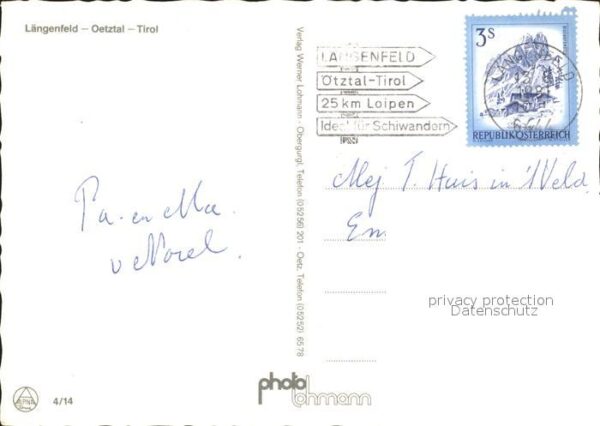 Längenfeld – Oetztal – Tirol
Verlag Werner Lohmann - Obergurgl, Telefon (05256) 201 - Oetz, Telefon (05252) 6578
LÄNGENFELD
Ötztal-Tirol
25 km Loipen
Ideal für Schiwandern
3S
REPUBLIK ÖSTERREICH
Pa. en Ma.
v
Mej T. Huis in 't Veld
Em.
privacy protection
Datenschutz
4/14
photo
lohmann